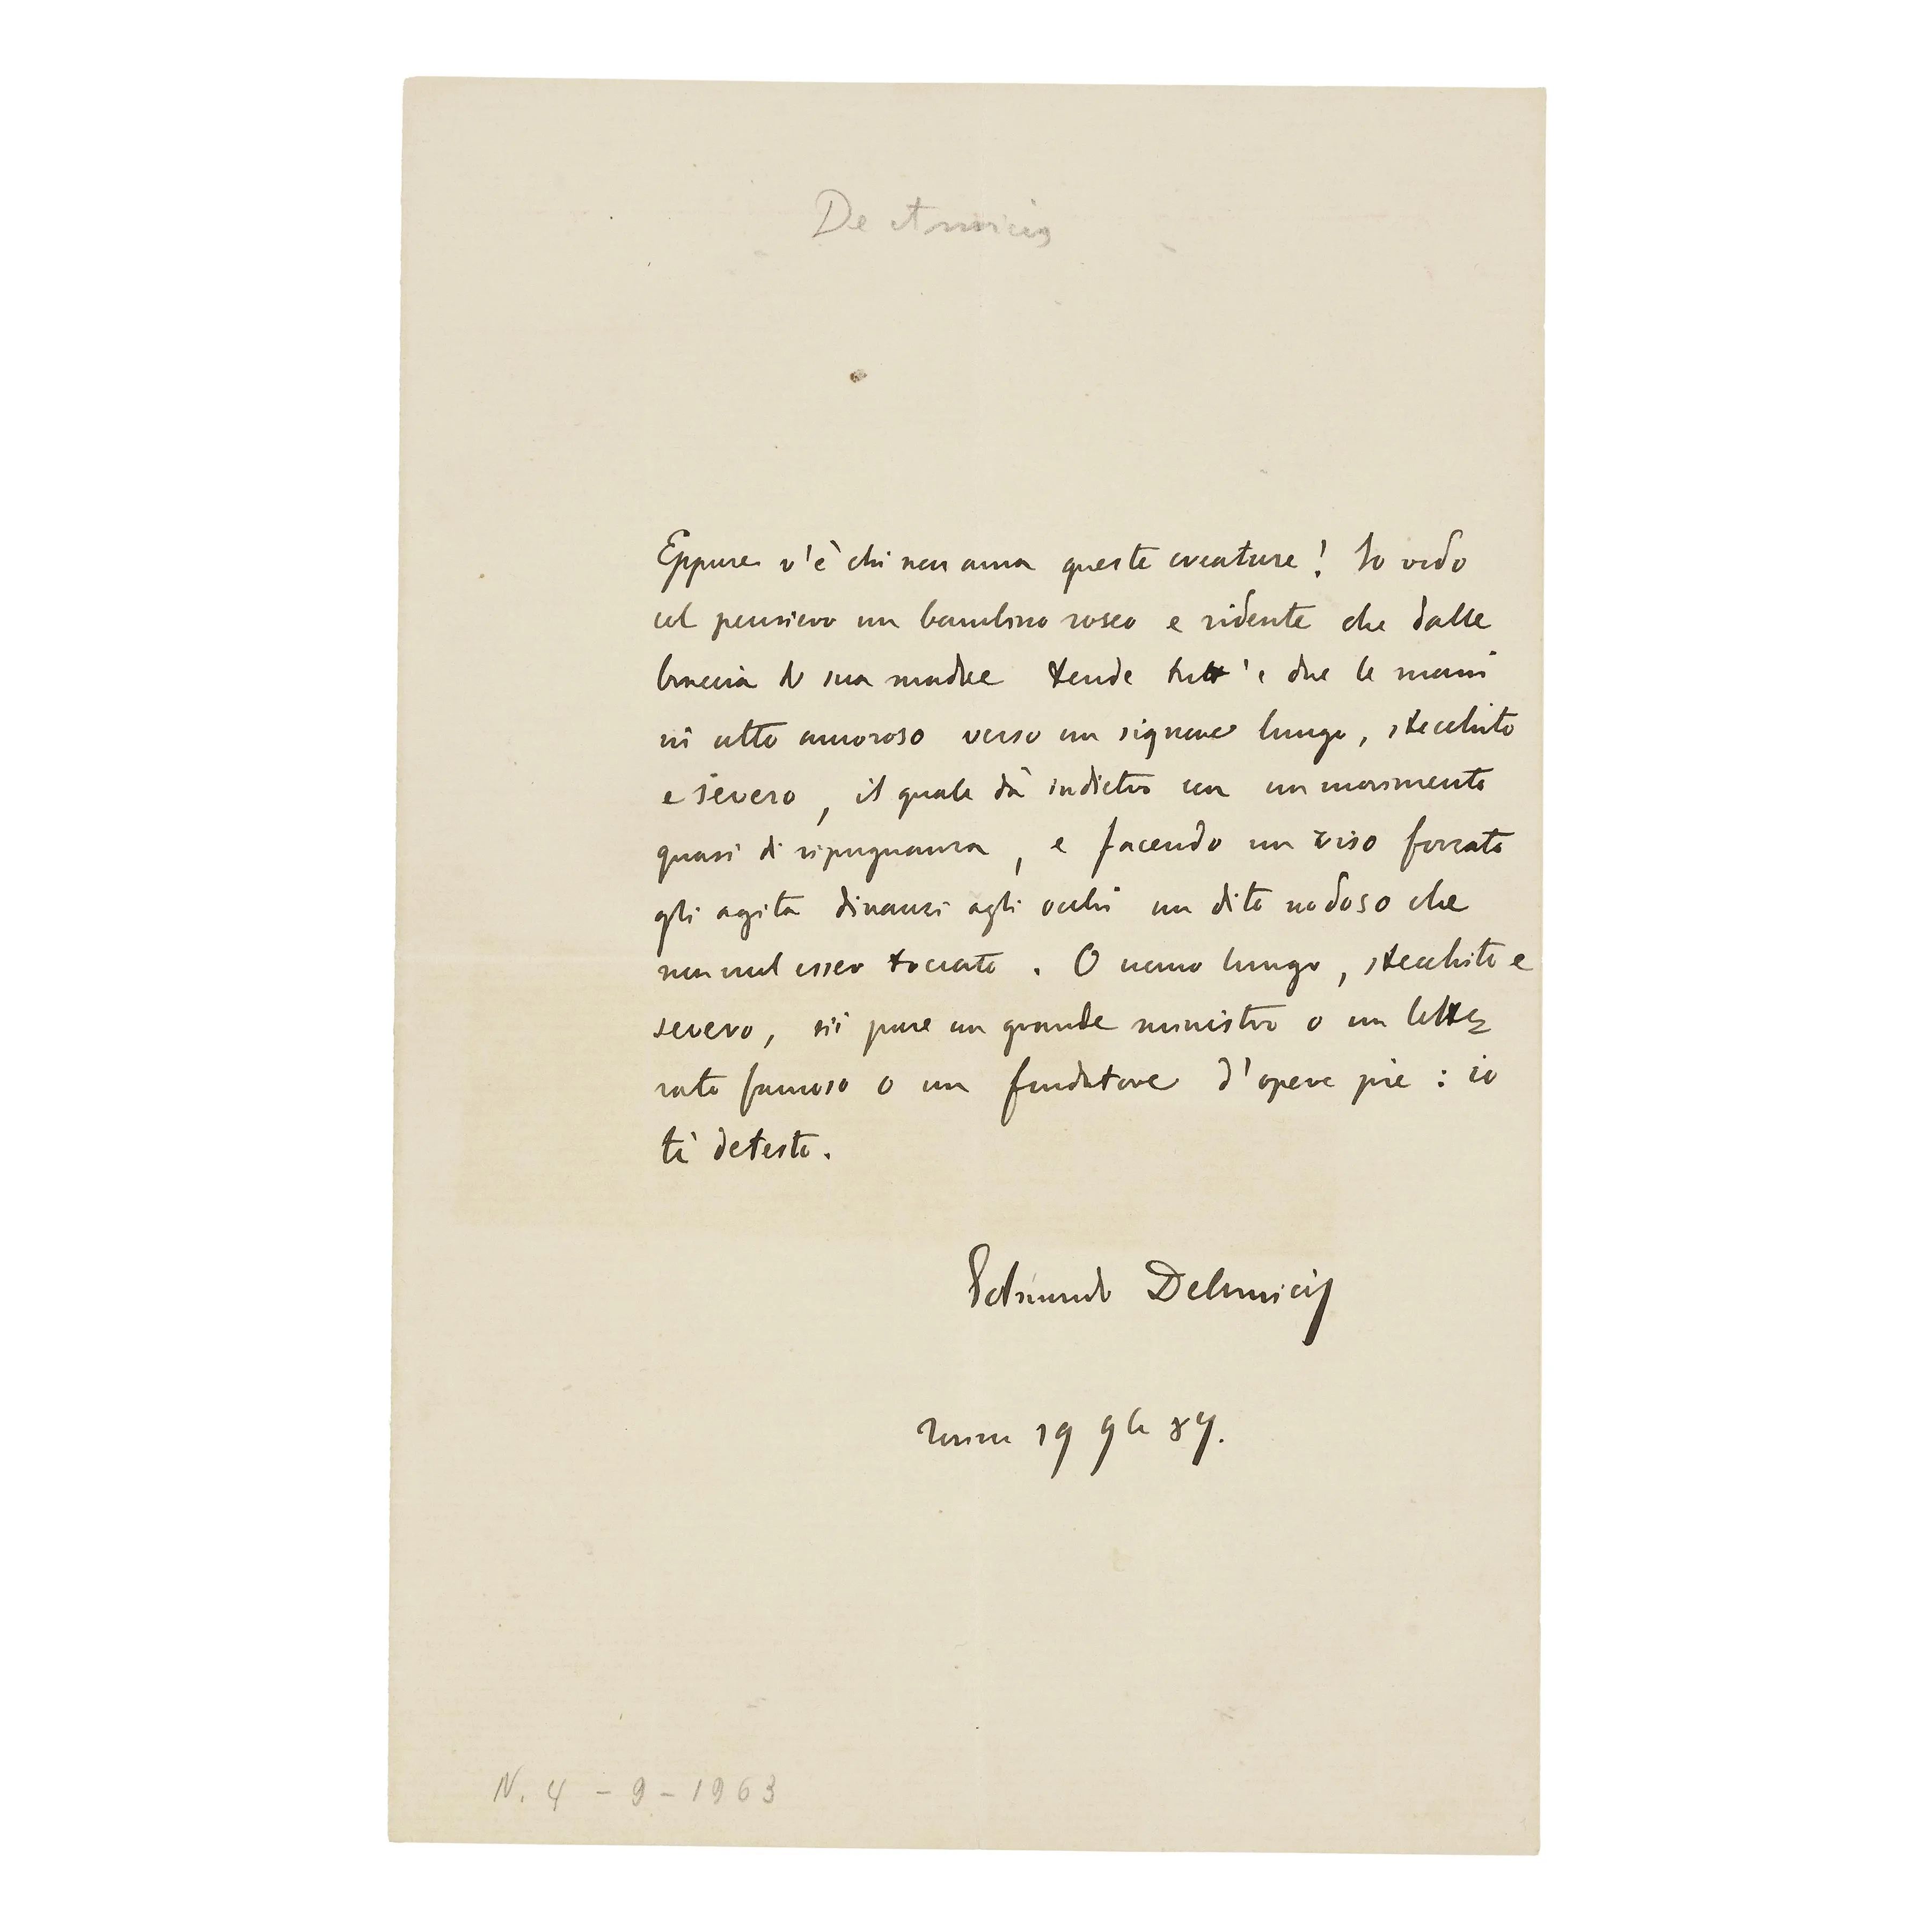 De Amicis
Eppure v'è chi non ama queste creature! Io vedo
col pensiero un bambino roseo e ridente che dalle
braccia di sua madre tende tutt'e due le mani
in atto amoroso verso un signore lungo, stecchito
e severo, il quale dà indietro con un movimento
quasi di ripugnanza, e facendo un viso forzato
gli agita dinanzi agli occhi un dito nodoso che
non vuol esser toccato. O uomo lungo, stecchito e
severo, sii pure un grande ministro o un lette=
rato famoso o un fondatore d'opere pie: io
ti detesto.
Edmondo DeAmicis
19 9b 89.
N. 4 - 9 - 1963